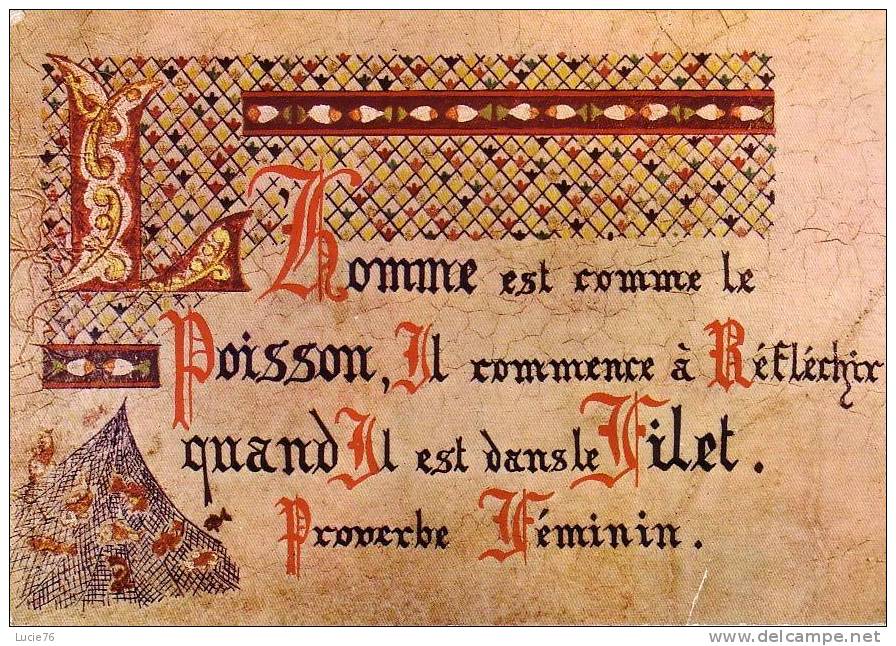 L'homme est comme le
Poisson, Il commence à Réfléchir
quand Il est dans le Filet.
Proverbe Féminin.
Lucie76
www.delcampe.net